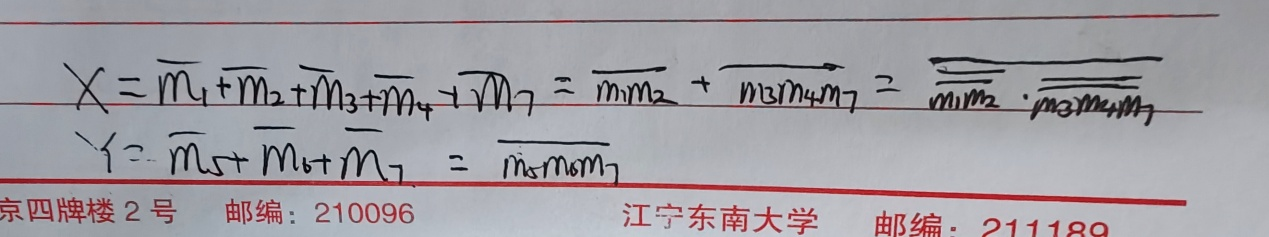 X = m̅₁ + m̅₂ + m̅₃ + m̅₄ + m̅₇ = \overline{m₁m₂} + \overline{m₃m₄m₇} = \overline{\overline{\overline{m₁m₂}} · \overline{\overline{m₃m₄m₇}}}
Y = m̅₅ + m̅₆ + m̅₇ = \overline{m₅m₆m₇}
京四牌楼 2 号 邮编：210096 江宁东南大学 邮编：211189